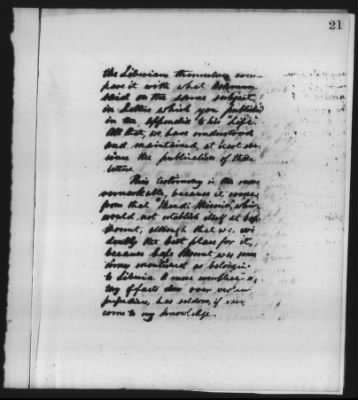 21
the Liberian themselves com-
pare it with what
said on the same subject,
in letters which you published
in the appendix to his Life.
All that, we have understood
and maintained, at least ever
since the publication of those
letters.
This testimony is the more
remarkable, because it comes
from that Mendi Mission, which
would not establish itself at Cape
Mount, although that was evi-
dently the best place for it,
because Cape Mount was some
times mentioned as belonging
to Liberia. A more
of facts over
prejudice, has seldom, if ever
come to my knowledge.